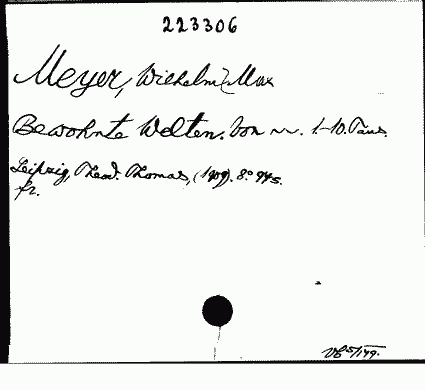 223306
Meyer, Wilhelm Max
Bewohnte Welten. Von ~. 1-10. Taus.
Leipzig, Theod. Thomas, (1909). 8° 94 S.
fr.